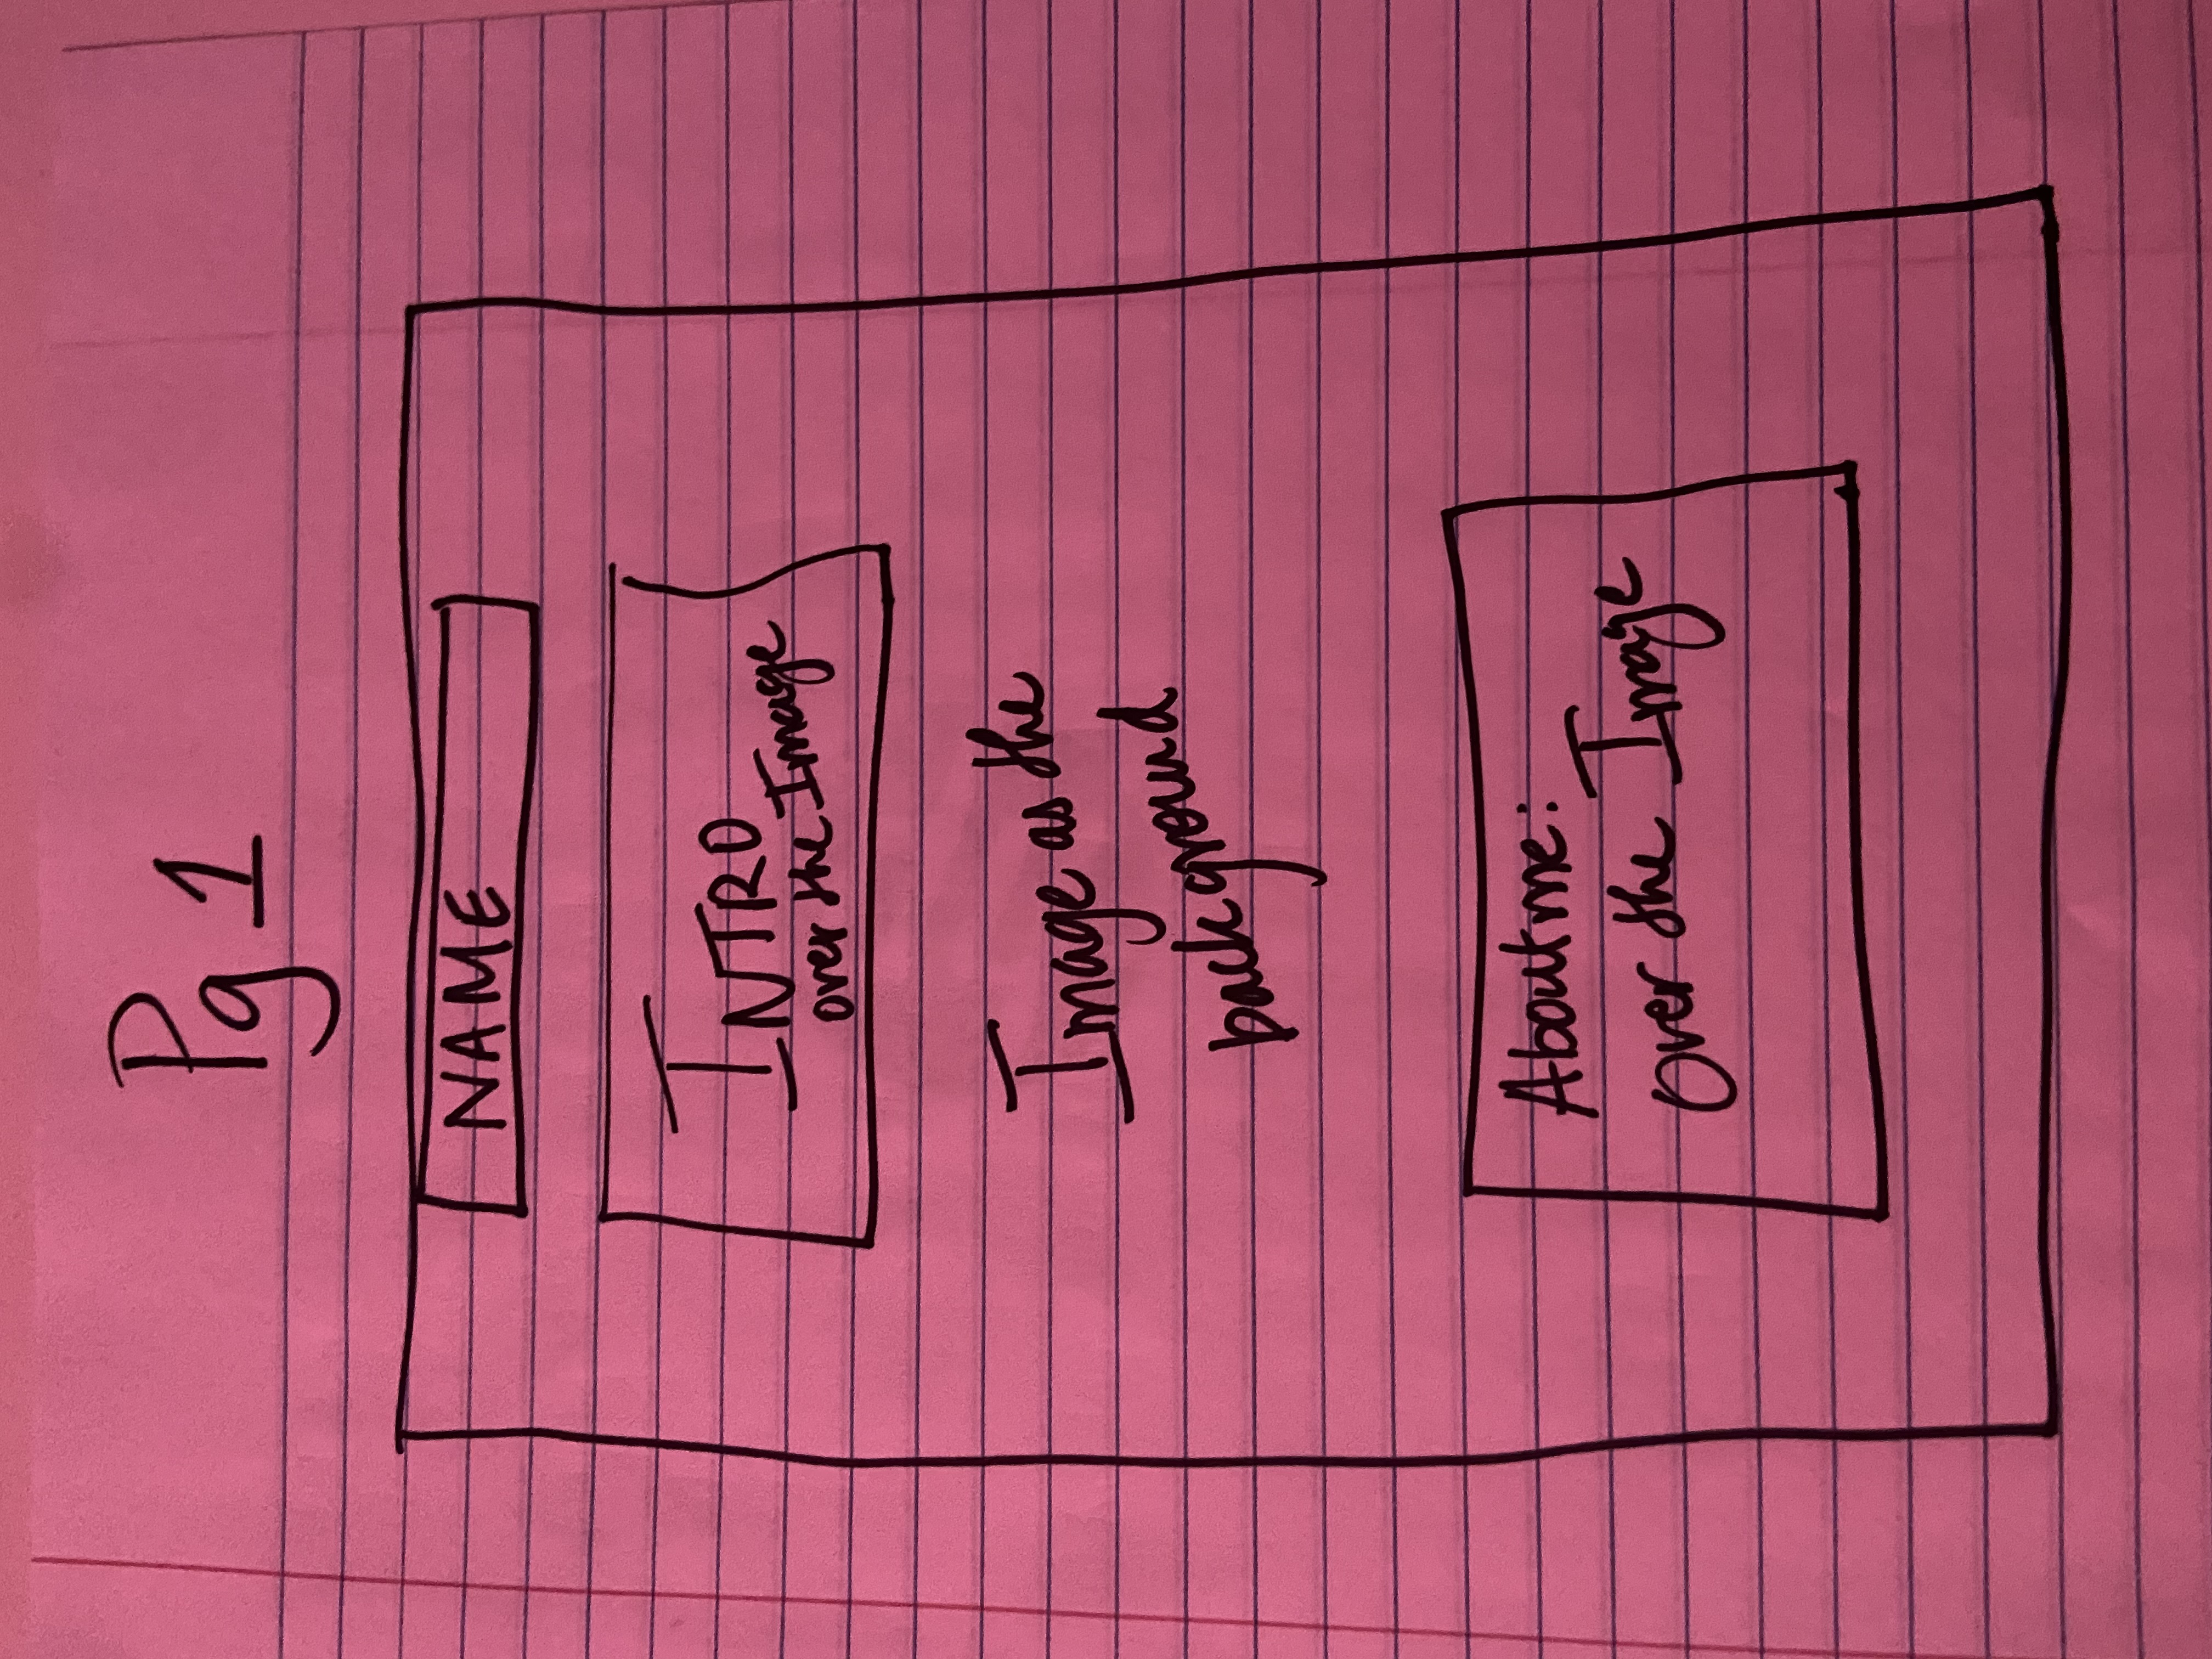 Pg 1
NAME
INTRO
over the Image
Image as the
background
About me:
over the Image